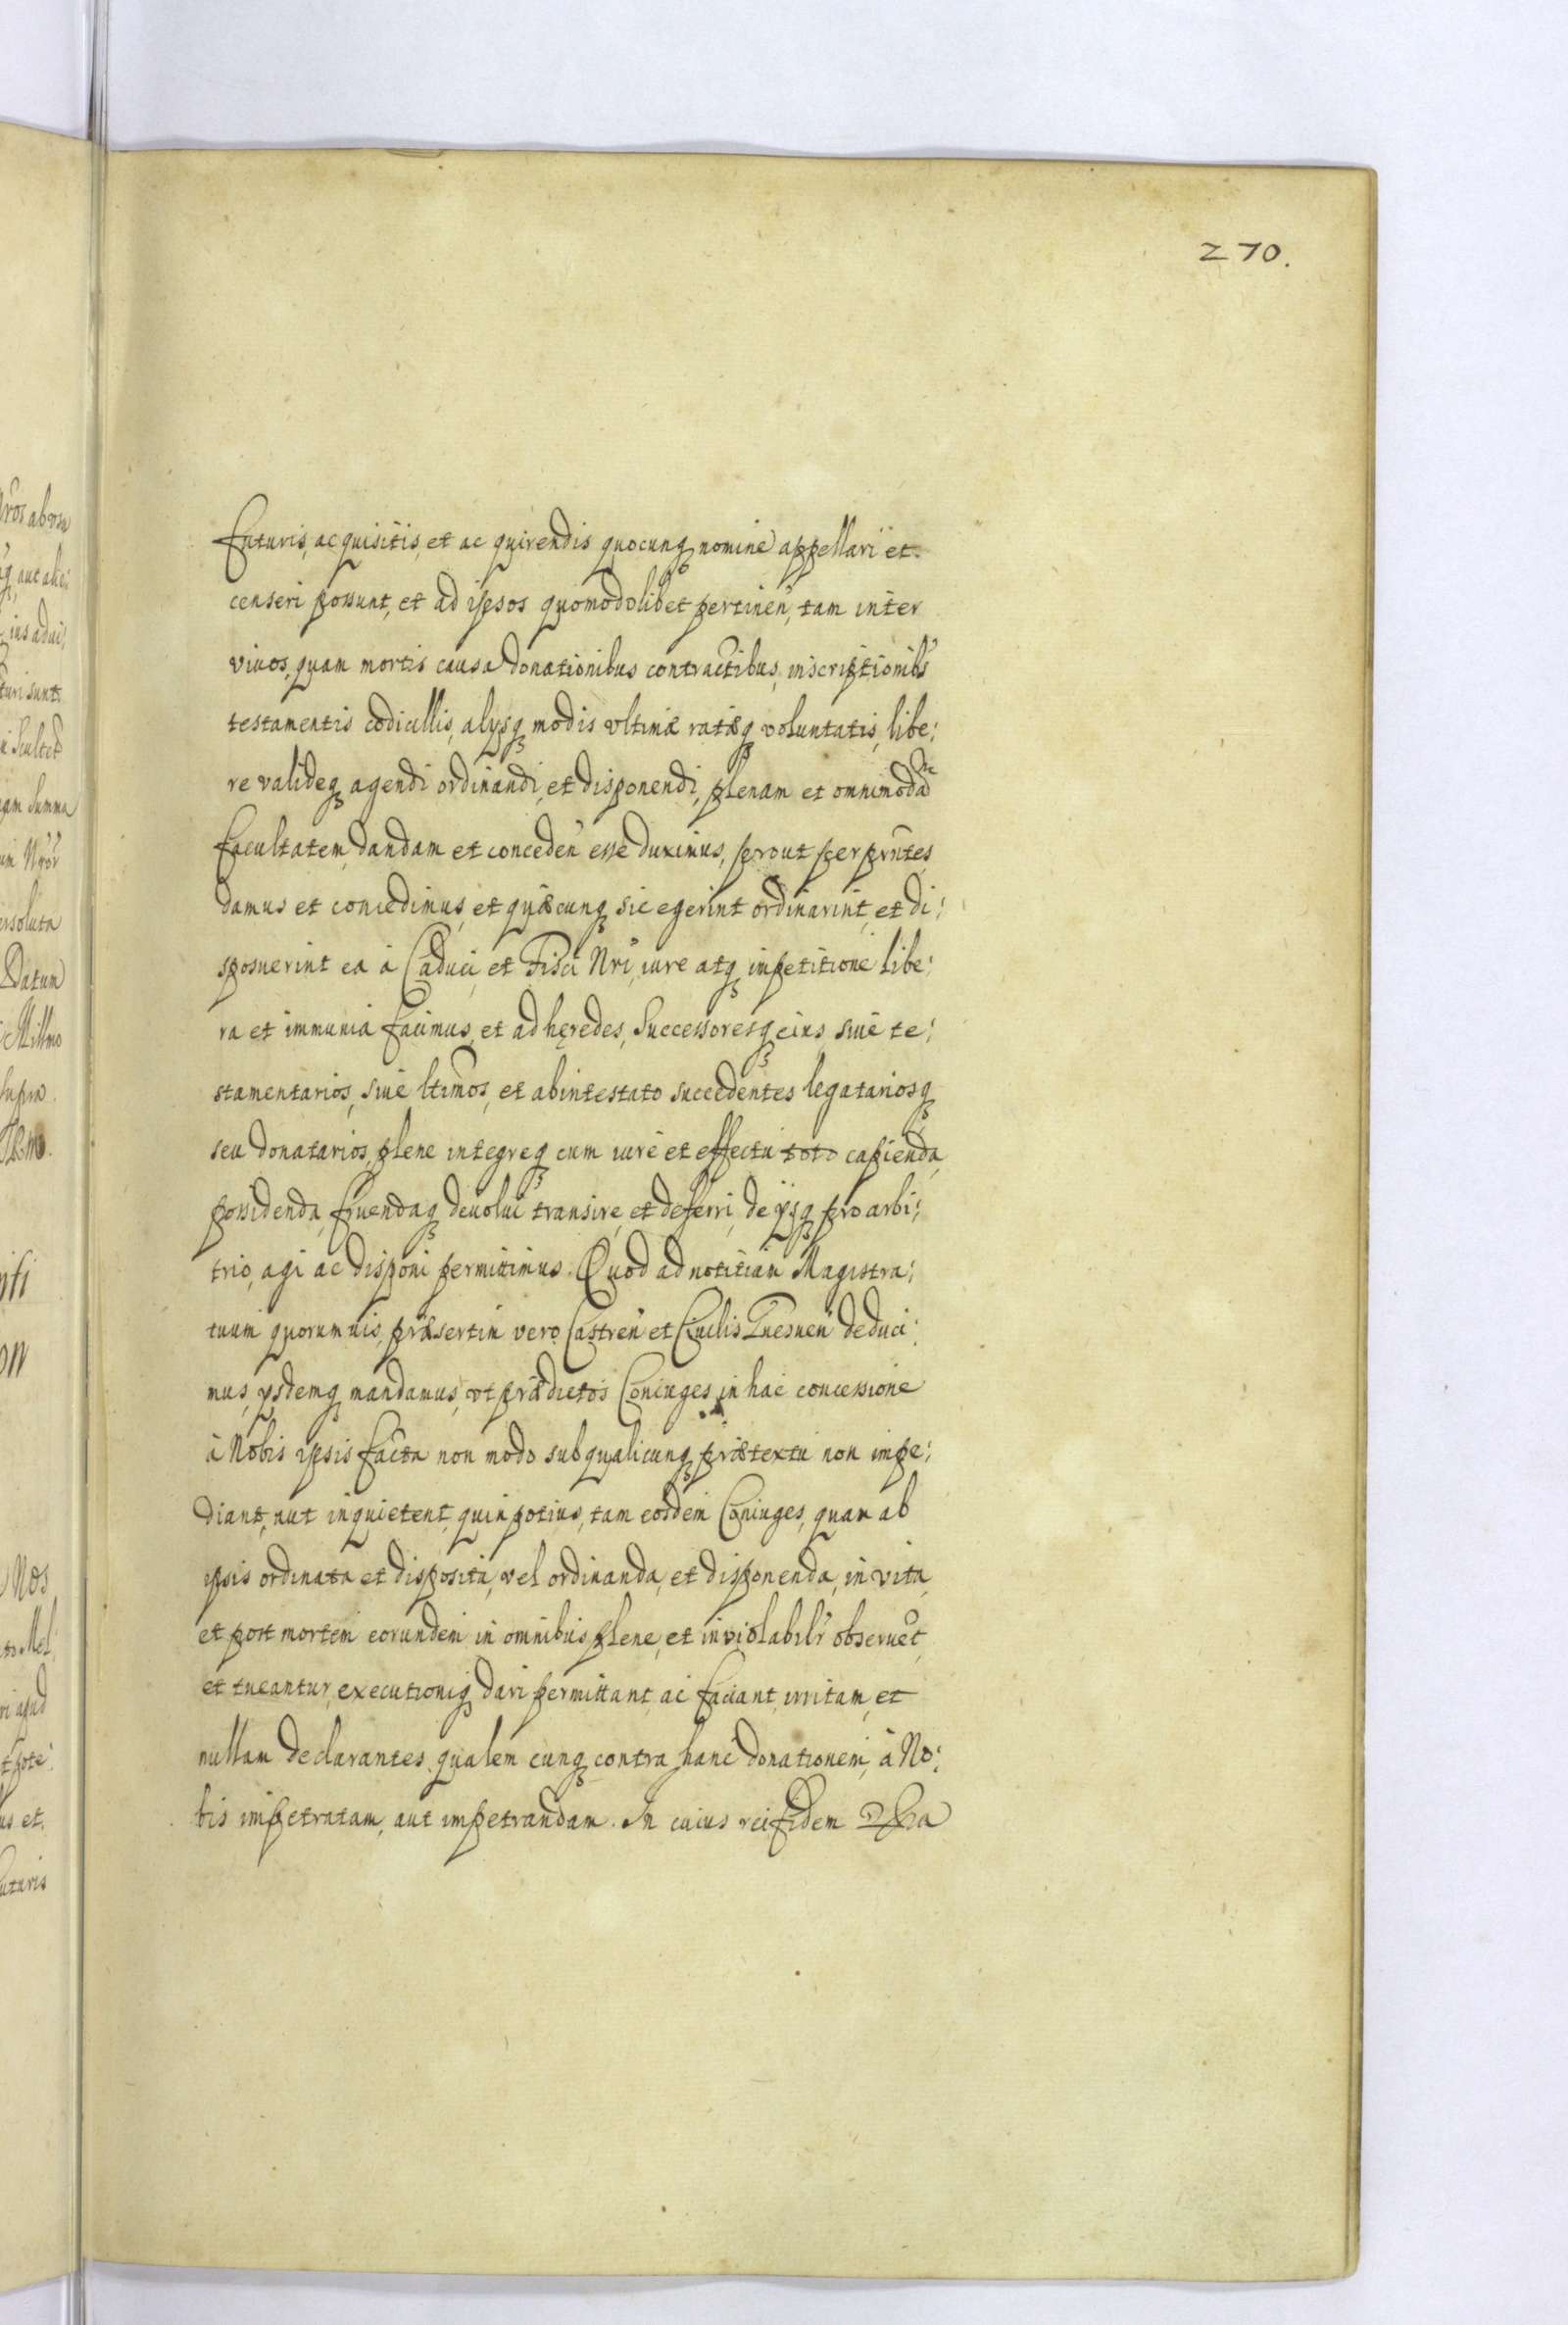 270.
futuris, acquisitis, et acquirendis quocunq nomine appellari et
censeri possunt, et ad ipsos quomodolibet pertinen, tam inter
viuos, quam mortis causa donationibus contractibus, inscriptionibs
testamentis codicillis, alysq modis vltimæ ratæq voluntatis, libe:
re valideq agendi ordinandi, et disponendi, plenam et omnimodam
facultatem, dandam et conceden esse duximus, prout per prntes
damus et concedimus, et quæcunq sic egerint ordinarint, et di:
sposuerint ea à Caduci, et Fisci Nri, iure atq impetitione libe:
ra et immunia facimus, et ad hęredes, Successoresq eius siue te:
stamentarios, siue ltimos, et abintestato succedentes legatariosq
seu donatarios, plene integreq cum iure et effectu toto capienda,
possidenda, fruendaq deuolui transire, et deferri, de ijsq pro arbi:
trio, agi ac disponi permittimus. Quod ad notitiam Magistra:
tuum quorumuis, præsertim vero Castren et Ciuilis Gnesnen deduci:
mus, ysdemq mandamus, vt prædictos Coniuges in hac concessione
à Nobis ipsis facta non modo sub qualicunq prætextu non impe:
diant, aut inquietent, quin potius, tam eosdem Coniuges, quam ab
ipsis ordinata et disposita, vel ordinanda, et disponenda, in vita,
et post mortem eorundem in omnibus plene, et inviolabilr obseruet,
et tueantur, executioniq dari permittant, ac faciant, irritam, et
nullam declarantes qualemcunq contra hanc donationem, à No:
bis impetratam, aut impetrandam. In cuius rei fidem